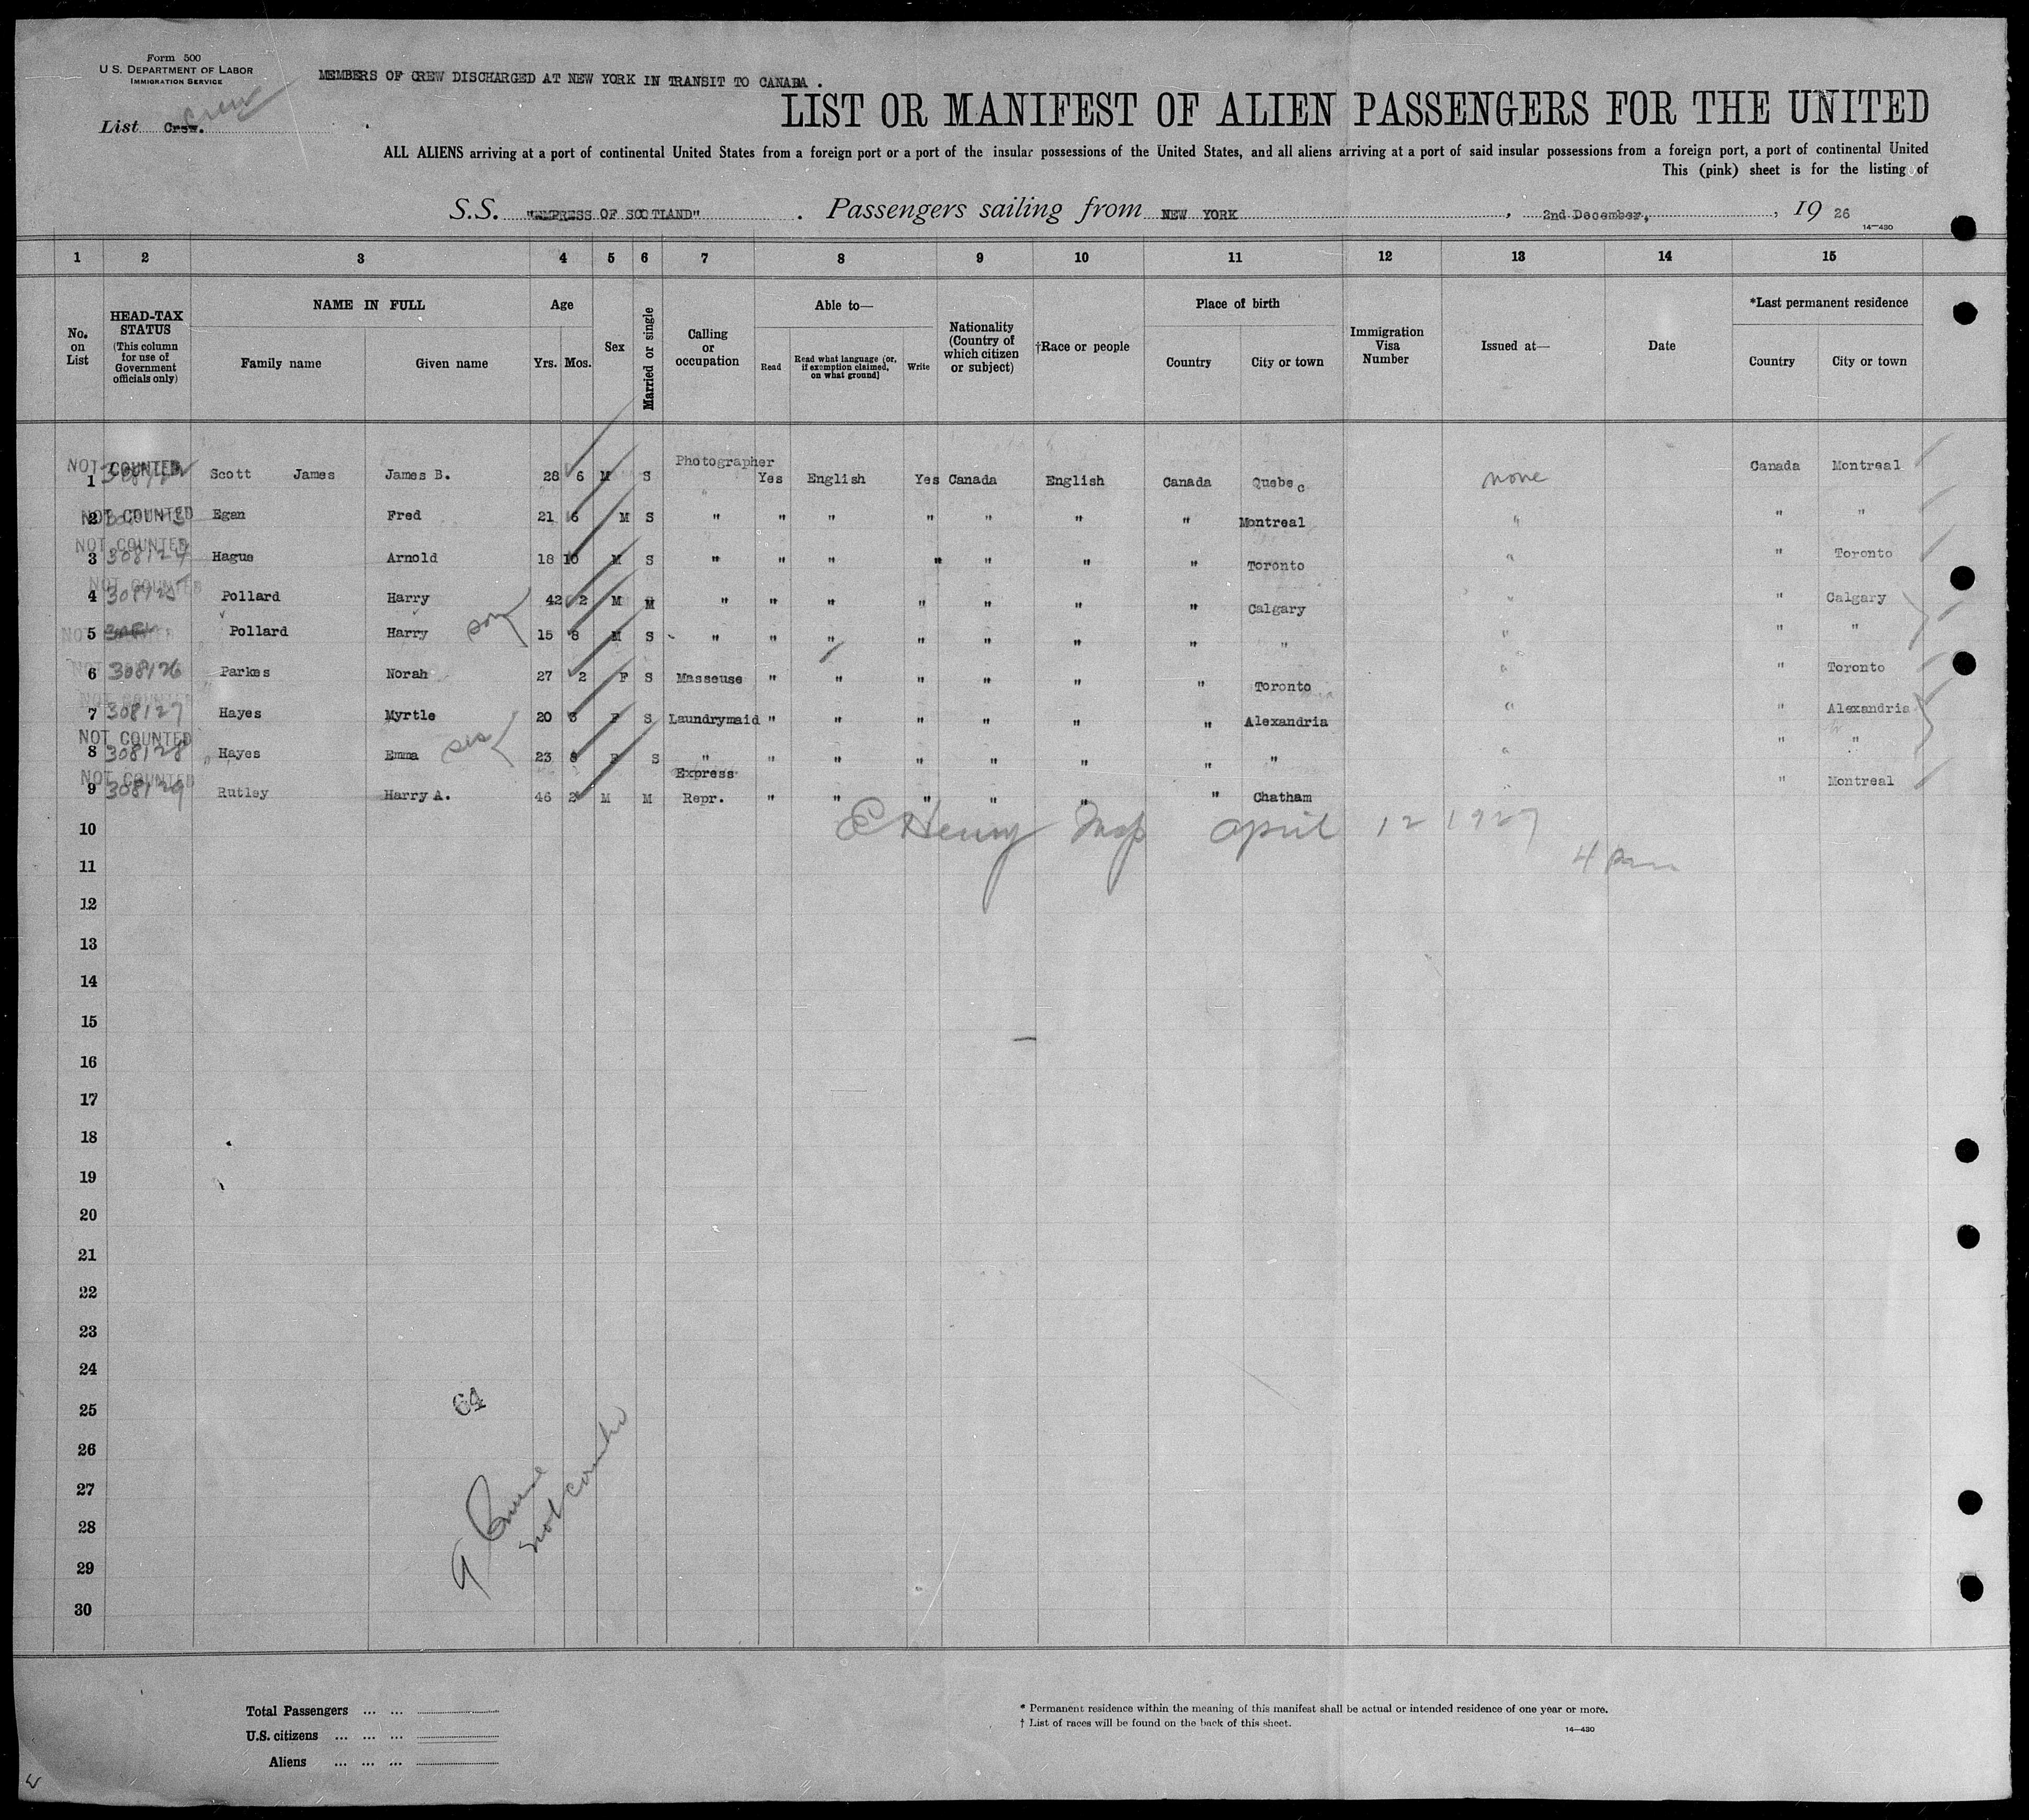 Form 500
U.S. DEPARTMENT OF LABOR
IMMIGRATION SERVICE
MEMBERS OF CREW DISCHARGED AT NEW YORK IN TRANSIT TO CANADA.
Crew
List Crew.
LIST OR MANIFEST OF ALIEN PASSENGERS FOR THE UNITED
ALL ALIENS arriving at a port of continental United States from a foreign port or a port of the insular possessions of the United States, and all aliens arriving at a port of said insular possessions from a foreign port, a port of continental United
This (pink) sheet is for the listing of
S.S. "EMPRESS OF SCOTLAND". Passengers sailing from NEW YORK, 2nd December, 1926
14—430
1 2 3 4 5 6 7 8 9 10 11 12 13 14 15
No. on List
HEAD-TAX STATUS (This column for use of Government officials only)
NAME IN FULL
Family name Given name
Age
Yrs. Mos.
Sex
Married or single
Calling or occupation
Able to—
Read Read what language (or, if exemption claimed, on what ground) Write
Nationality (Country of which citizen or subject)
†Race or people
Place of birth
Country City or town
Immigration Visa Number
Issued at—
Date
*Last permanent residence
Country City or town
NOT COUNTED
1 Scott James James B. 28 6 M S Photographer Yes English Yes Canada English Canada Quebec none Canada Montreal
NOT COUNTED
2 Egan Fred 21 6 M S " " " " " " " Montreal " " "
NOT COUNTED
3 308124 Hague Arnold 18 10 M S " " " " " " " Toronto " " Toronto
NOT COUNTED
4 308125 Pollard Harry 42 2 M M " " " " " " " Calgary " " Calgary
son
5 Pollard Harry 15 8 M S " " " " " " " " " " "
NOT COUNTED
6 308126 Parkes Norah 27 2 F S Masseuse " " " " " " Toronto " " Toronto
NOT COUNTED
7 308127 Hayes Myrtle 20 3 F S Laundrymaid " " " " " " Alexandria " " Alexandria
NOT COUNTED
sis
8 308128 Hayes Emma 23 8 F S " " " " " " " " " " "
NOT COUNTED
9 308129 Rutley Harry A. 46 2 M M Express Repr. " " " " " " Chatham " Montreal
10 E Henry Insp April 12 1927
11 4 pm
12
13
14
15
16
17
18
19
20
21
22
23
24
25 64
26
27
28
29
30
9
not
Total Passengers ... ...
U.S. citizens ... ... ...
Aliens ... ... ...
* Permanent residence within the meaning of this manifest shall be actual or intended residence of one year or more.
† List of races will be found on the back of this sheet.
14—430